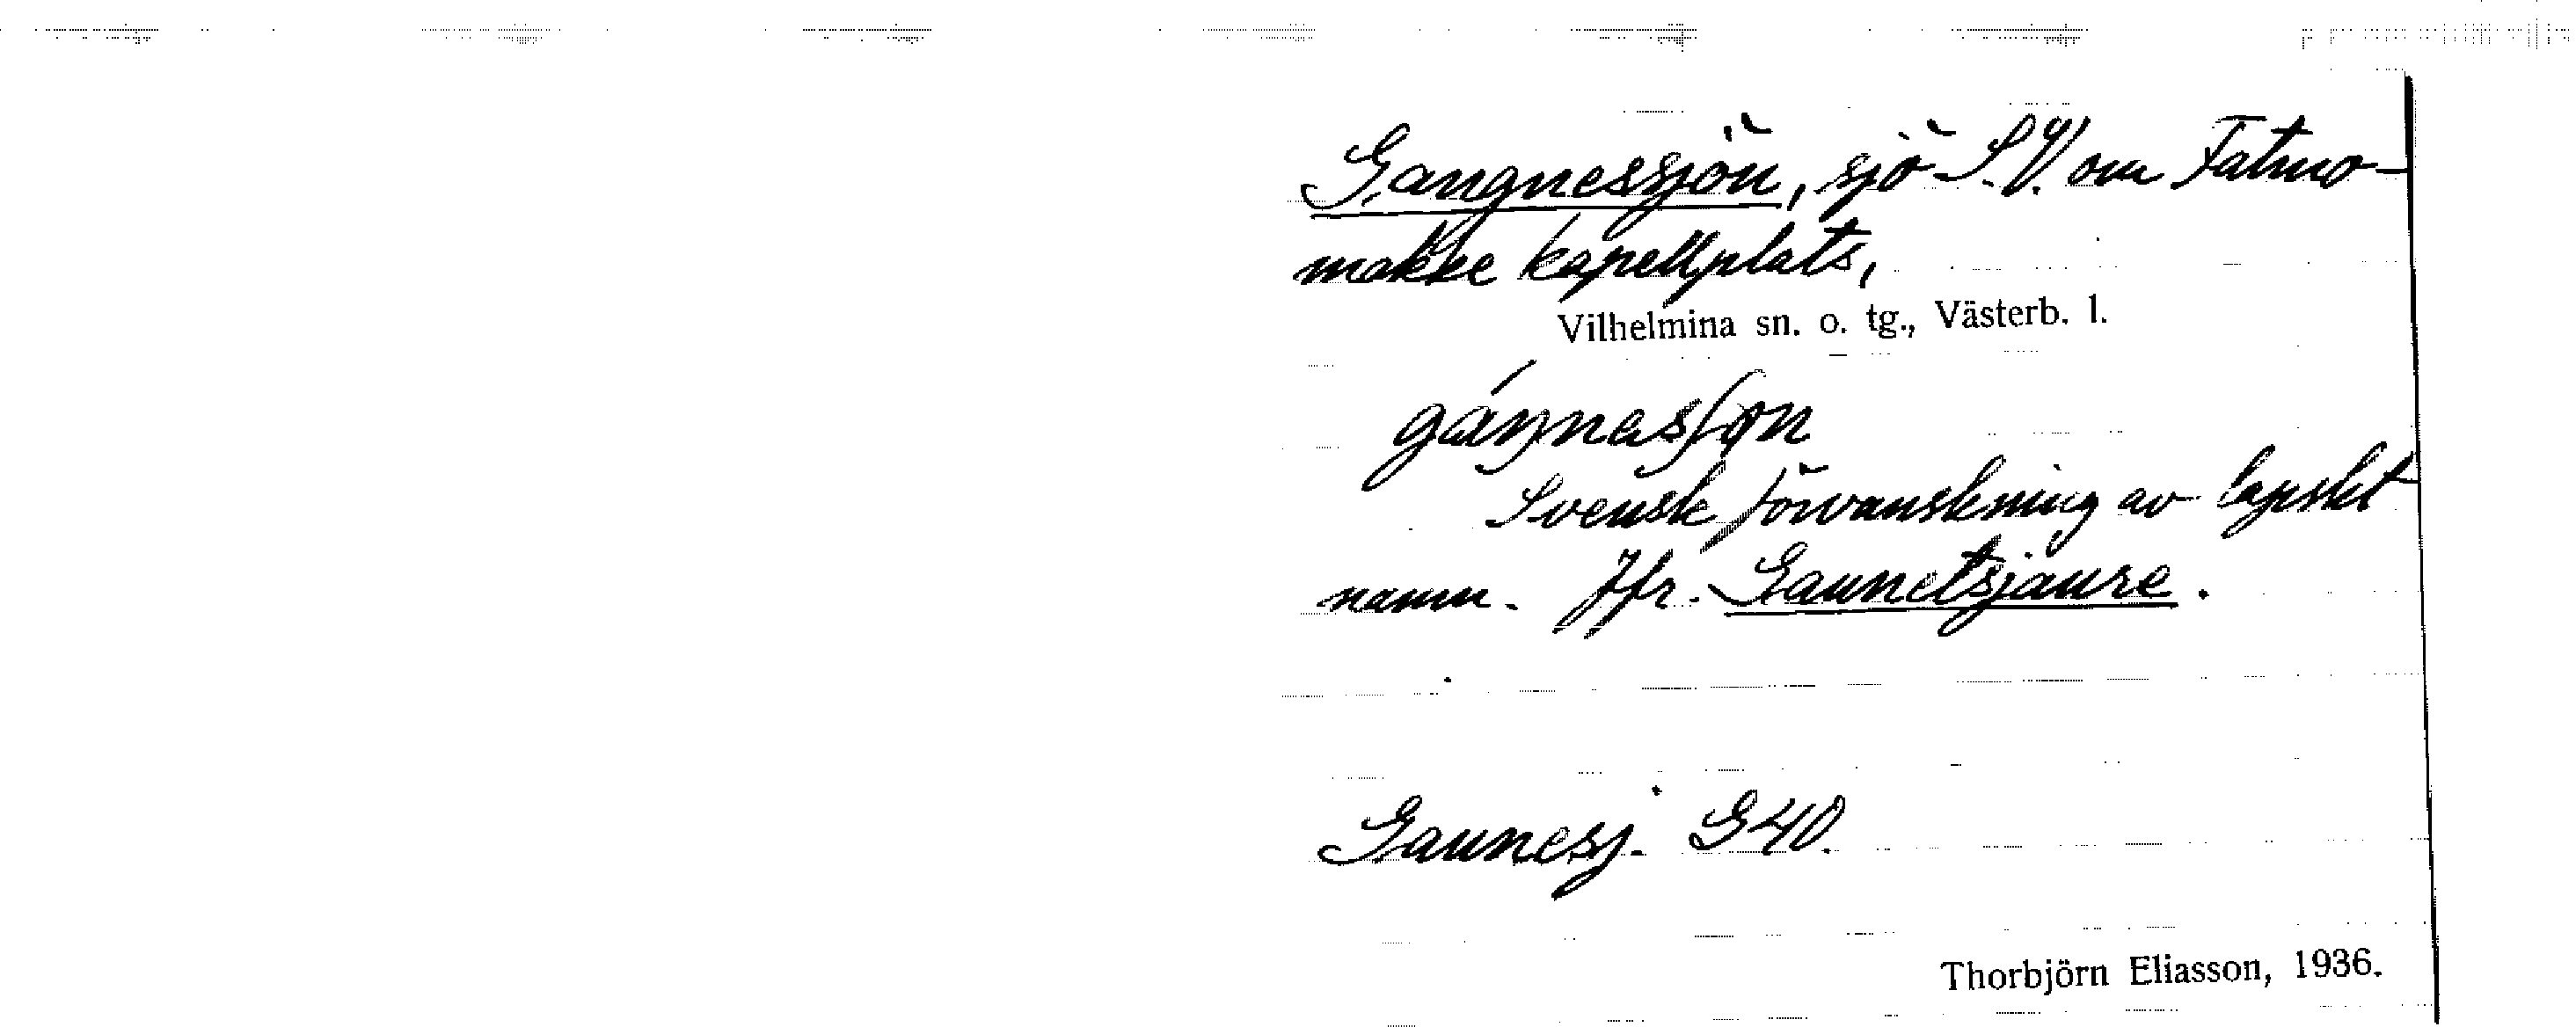 Gangnessjön, sjö S.V. om Fatmo-
makke kapellplats,
Vilhelmina sn. o. tg., Västerb. l.
gáŋnasʃøn
Svensk förvanskning av lapskt
namn. Jfr. Gaunetsjaure.
Gaunesj. G40.
Thorbjörn Eliasson, 1936.